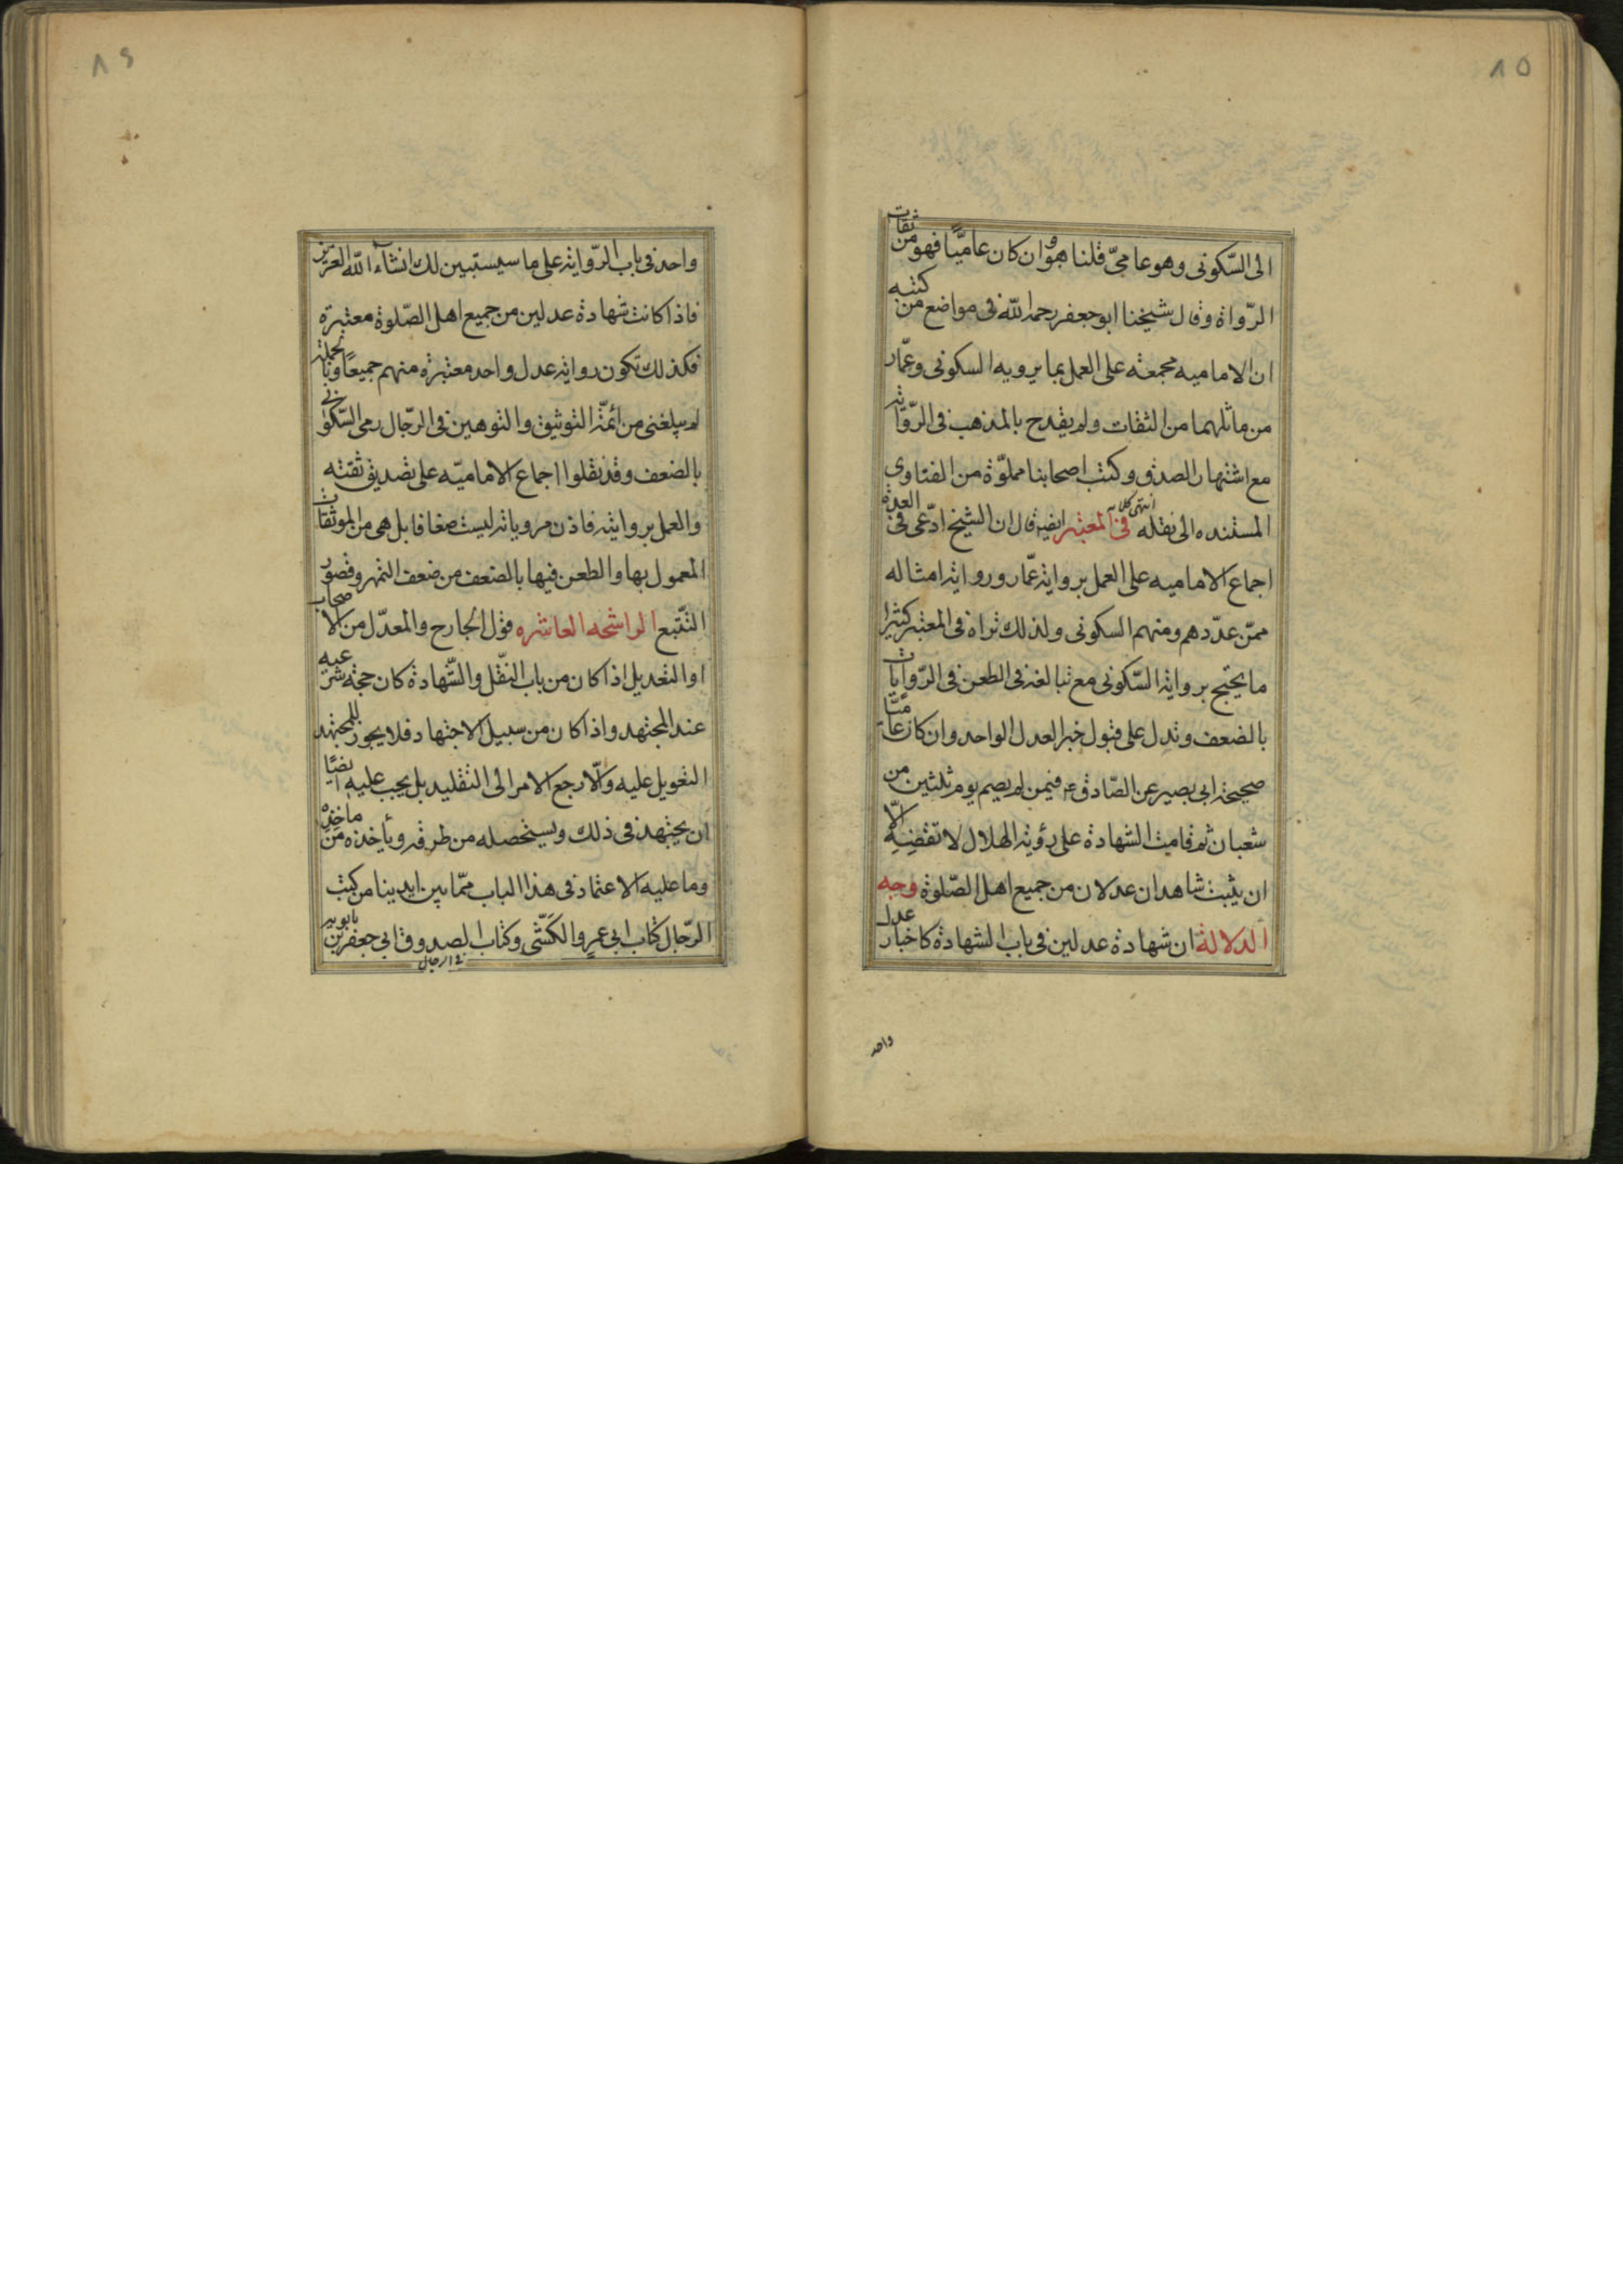 ٨٥
الى السّكونى وهو عامىّ قلنا هو وان كان عاميًّا فهو من ثقات
الرّواة وقال شيخنا ابو جعفر رحمه اللّه فى مواضع من كتبه
ان الاماميه مجمعة على العمل بما يرويه السكونى وعمّار
من ماثلهما من الثقات ولم يقدح بالمذهب فى الرّواية
مع اشتهار الصدق وكتب اصحابنا مملوّة من الفتاوى
المستنده الى نقله انتهى كلامه فى المعتبر ايضا قال ان الشيخ ادّعى فى العدة
اجماع الاماميه على العمل برواية عمّار ورواية امثاله
ممّن عدّدهم ومنهم السكونى ولذلك تراه فى المعتبر كثيرا
ما يحتج برواية السّكونى مع تبالغه فى الطعن فى الرّوايات
بالضعف وتدل على قبول خبر العدل الواحد وان كان عاميًّا
صحيحة ابى بصير عن الصّادق ع فيمن لم يصم يوم ثلثين من
شعبان ثم قامت الشهادة على رؤية الهلال لا تقضه الّا
ان يثبت شاهدان عدلان من جميع اهل الصّلوة وجه
الدلالة ان شهادة عدلين فى باب الشهادة كاخبار عدل
واحد
٨٦
واحد فى باب الرّواية على ما سيستبين لك انشآء اللّه العزيز
فاذا كانت شهادة عدلين من جميع اهل الصّلوة معتبرة
فكذلك تكون رواية عدل واحد معتبرة منهم جميعًا وبالجملة
لم يبلغنى من ائمّة التوثيق والتوهين فى الرّجال رمى السّكونى
بالضعف وقد نقلوا اجماع الاماميّه على تصديق ثقته
والعمل بروايته فاذن مروياته ليست ضعافا بل هى من الموثقات
المعمول بها والطعن فيها بالضعف من ضعف التمهر وقصور
التّتبع الراشحه العاشره قول الجارح والمعدّل من الاصحاب
او التعديل اذا كان من باب النّقل والشّهادة كان حجة شرعيه
عند المجتهد واذا كان من سبيل الاجتهاد فلا يجوز للمجتهد
التعويل عليه والّا رجع الامر الى التقليد بل يجب عليه ايضًا
ان يجتهد فى ذلك ويستحصله من طرقه ويأخذه من ماخذه
وما عليه الاعتماد فى هذا الباب ممّا بين ايدينا من كتب
الرّجال كتاب ابى عمرٍو الكَشّى وكتاب الصدوق ابى جعفر بن بابويه